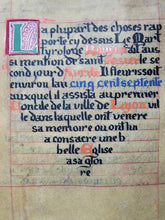 La plupart des choses rap
porte cy dessus Le Mart
tyrologe fait aus
si mention de saint le se
cond jour Il fleurissoit
environ lan cinq cent septente
auquel il assista au premier
Concile de la ville de Lyon vil
le dans laquelle on t venere
sa memoire ou ont lui
a consacre une b
belle Eglise
asa gloi
re